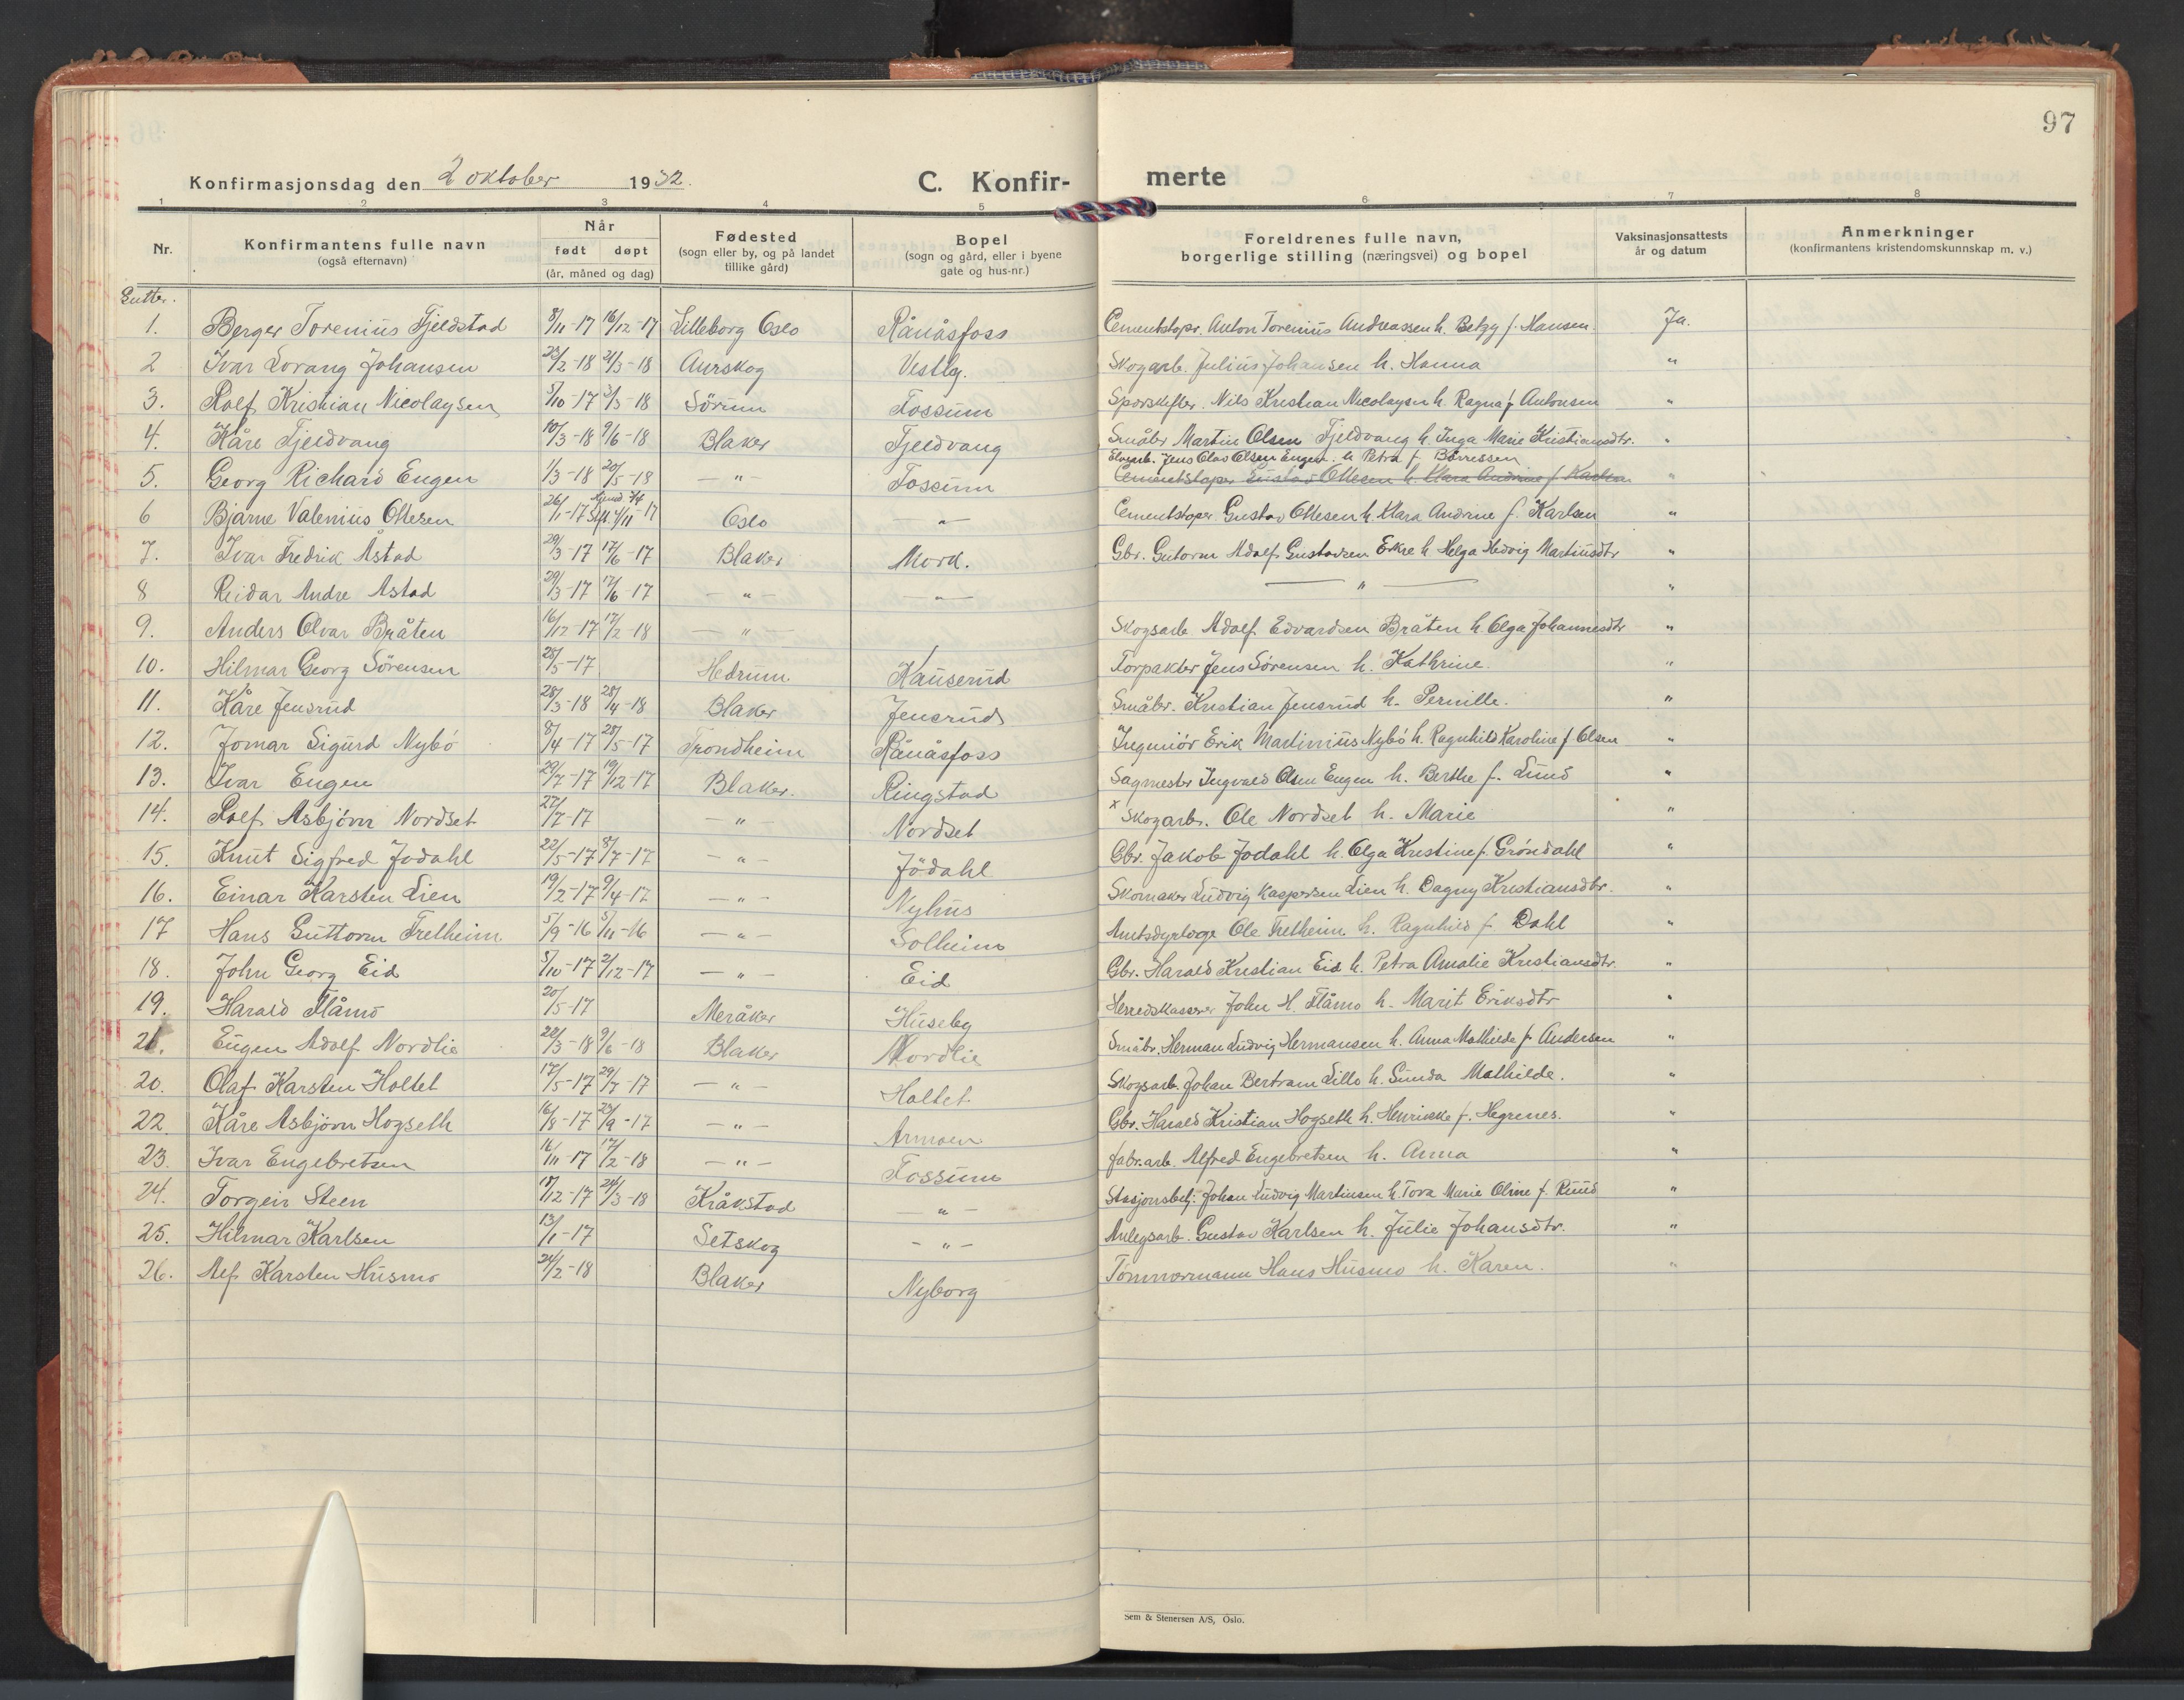 97
Konfirmasjonsdag den 2 oktober 1932. C. Konfir- merte
1 2 3 4 5 6 7 8
Nr. Konfirmantens fulle navn (også efternavn) Når født døpt (år, måned og dag) Fødested (sogn eller by, og på landet tillike gård) Bopel (sogn og gård, eller i byene gate og hus-nr.) Foreldrenes fulle navn, borgerlige stilling (næringsvei) og bopel Vaksinasjonsattests år og datum Anmerkninger (konfirmantens kristendomskunnskap m. v.)
Gutter.
1. Berger Torenius Fjeldstad 8/11-17 16/12-17 Lilleborg Oslo Rånåsfoss Cementstøpr. Anton Torenius Andreassen h. Betzy f. Hansen. Ja.
2 Ivar Lorang Johansen 23/2-18 21/3-18 Aurskog Vestby. Skogarb. Julius Johansen h. Hanna "
3. Rolf Kristian Nicolaysen 5/10-17 3/3-18 Sörum Fossum Nils Kristian Nicolaysen h. Ragna f. Antonsen "
4. Kåre Fjeldvang 10/3-18 9/6-18 Blaker Fjeldvang Småbr Martin Olsen Fjeldvang h. Inga Marie Kristiansdtr. "
Elvearb. Jens Olav Olsen Engen h. Petra f. Börressen
5. Georg Richard Engen 1/3-18 20/5-18 — " — Fossum Cementstøper Gustav Ottesen h. Klara Andrine f. Karlsen "
6 Bjarne Valenius Ottesen 26/1-17 4/11-17 Oslo — " — Cementstøper Gustav Ottesen h. Klara Andrine f. Karlsen "
7. Ivar Fredrik Åstad 29/3-17 17/6-17 Blaker Mork. Gbr. Gutorm Adolf Gustavsen Eikre h. Helga Hedvig Martinsdtr "
8 Reidar Andre Astad 29/3-17 17/6-17 — " — — " — — " — "
9. Anders Olvar Bråten 16/12-17 17/2-18 — " — Skogsarb Adolf Edvardsen Bråten h. Olga Johannesdtr "
10. Hilmar Georg Sörensen 28/5-17 Hedrum Kauserud Forpakter Jens Sörensen h. Kathrine. "
11. Kåre Jensrud 28/3-18 28/4-18 Blaker Jensrud Småbr. Kristian Jensrud h. Pernille. "
12. Jomar Sigurd Nybö 8/4-17 28/5-17 Trondheim Rånåsfoss Ingeniör Erik Martinius Nybö h. Ragnhild Karoline f Olsen "
13. Ivar Engen 29/7-17 19/12-17 Blaker. Ringstad Sagmester Ingvald Olsen Engen h. Berthe f. Lund "
14. Rolf Asbjörn Nordset 27/7-17 — " — Nordset x Skogarb. Ole Nordset h. Marie "
15. Knut Sigfred Jödahl 22/5-17 8/7-17 — " — Jödahl Gbr. Jakob Jödahl h. Olga Kristine f. Gröndahl "
16. Einar Karsten Lien 19/2-17 9/4-17 — " — Nyhus Skomaker Ludvig Kaspersen Lien h. Dagny Kristiansdtr. "
17 Hans Guttorm Fretheim 5/9-16 5/11-16 — " — Solheim Amtsdyrlæge Ole Fretheim h. Ragnhild f. Dahl "
18. John Georg Eid 5/10-17 2/12-17 — " — Eid Gbr. Harald Kristian Eid h. Petra Amalie Kristiansdtr. "
19. Harald Flåmo 20/5-17 Meråker Huseby Herredskasserer John H. Flåmo h. Marit Eriksdtr "
21. Eugen Adolf Nordlie 22/3-18 9/6-18 Blaker Nordlie Småbr. Herman Ludvig Hermansen h. Anna Mathilde f. Andersen "
20. Olaf Karsten Holtet 17/5-17 29/7-17 — " — Holtet. Skogsarb. Johan Bertram Lillo h. Gunda Mathilde. "
22. Kåre Asbjörn Hogseth 16/8-17 23/9-17 — " — Armoen Gbr. Harald Kristian Hogseth h. Henrikke f. Hegrenes. "
23. Ivar Engebretsen 16/11-17 17/2-18 — " — Fossum fabr.arb. Alfred Engebretsen h. Anna "
24. Torgeir Steen 17/12-17 24/3-18 Kråkstad — " — Stasjonsbetj. Johan Ludvig Martinsen h. Tora Marie Oline f. Ruud "
25. Hilmar Karlsen 13/1-17 Setskog — " — Anlegsarb. Gustav Karlsen h. Julie Johansdtr. "
26. Alf Karsten Husmo 24/2-18 Blaker Nyborg Tömmermann Hans Husmo h. Karen. "
Sem & Stenersen A/S, Oslo.